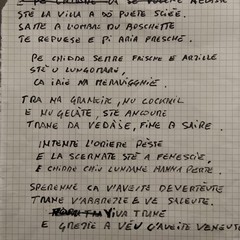 STÈ LA VILLA A DÒ PUETE SCIÉE.
SATTE A L'OMBRE DU BOSCHETTE
TE REPUESE E PI ARIA FRESCHE.
PE CHIDDE SEMBE FRISCHE E ARZILLE
STÈ U LUNGOMARE,
CA IAIE NA MERAVIGGHIE.
TRA NA GRANITE, NU COCKTAIL
E NU GELÀTE, STÈ ANCOURE
TRANE DA VEDAISE, FINE A SAIRE.
INTENTE L'ORIERE PÈSTE
E LA SCERNATE STE A FENESCIE,
E CHIDDE CHIÙ LUNDANE HANNA PERTE.
SPERENNE CA V'AVEITE DEVERTEUTE
TRANE V'ABBRAZZE E VE SALEUTE.
VIVA TRANE
E GREZIE A VEU C'AVEITE VENEUTE